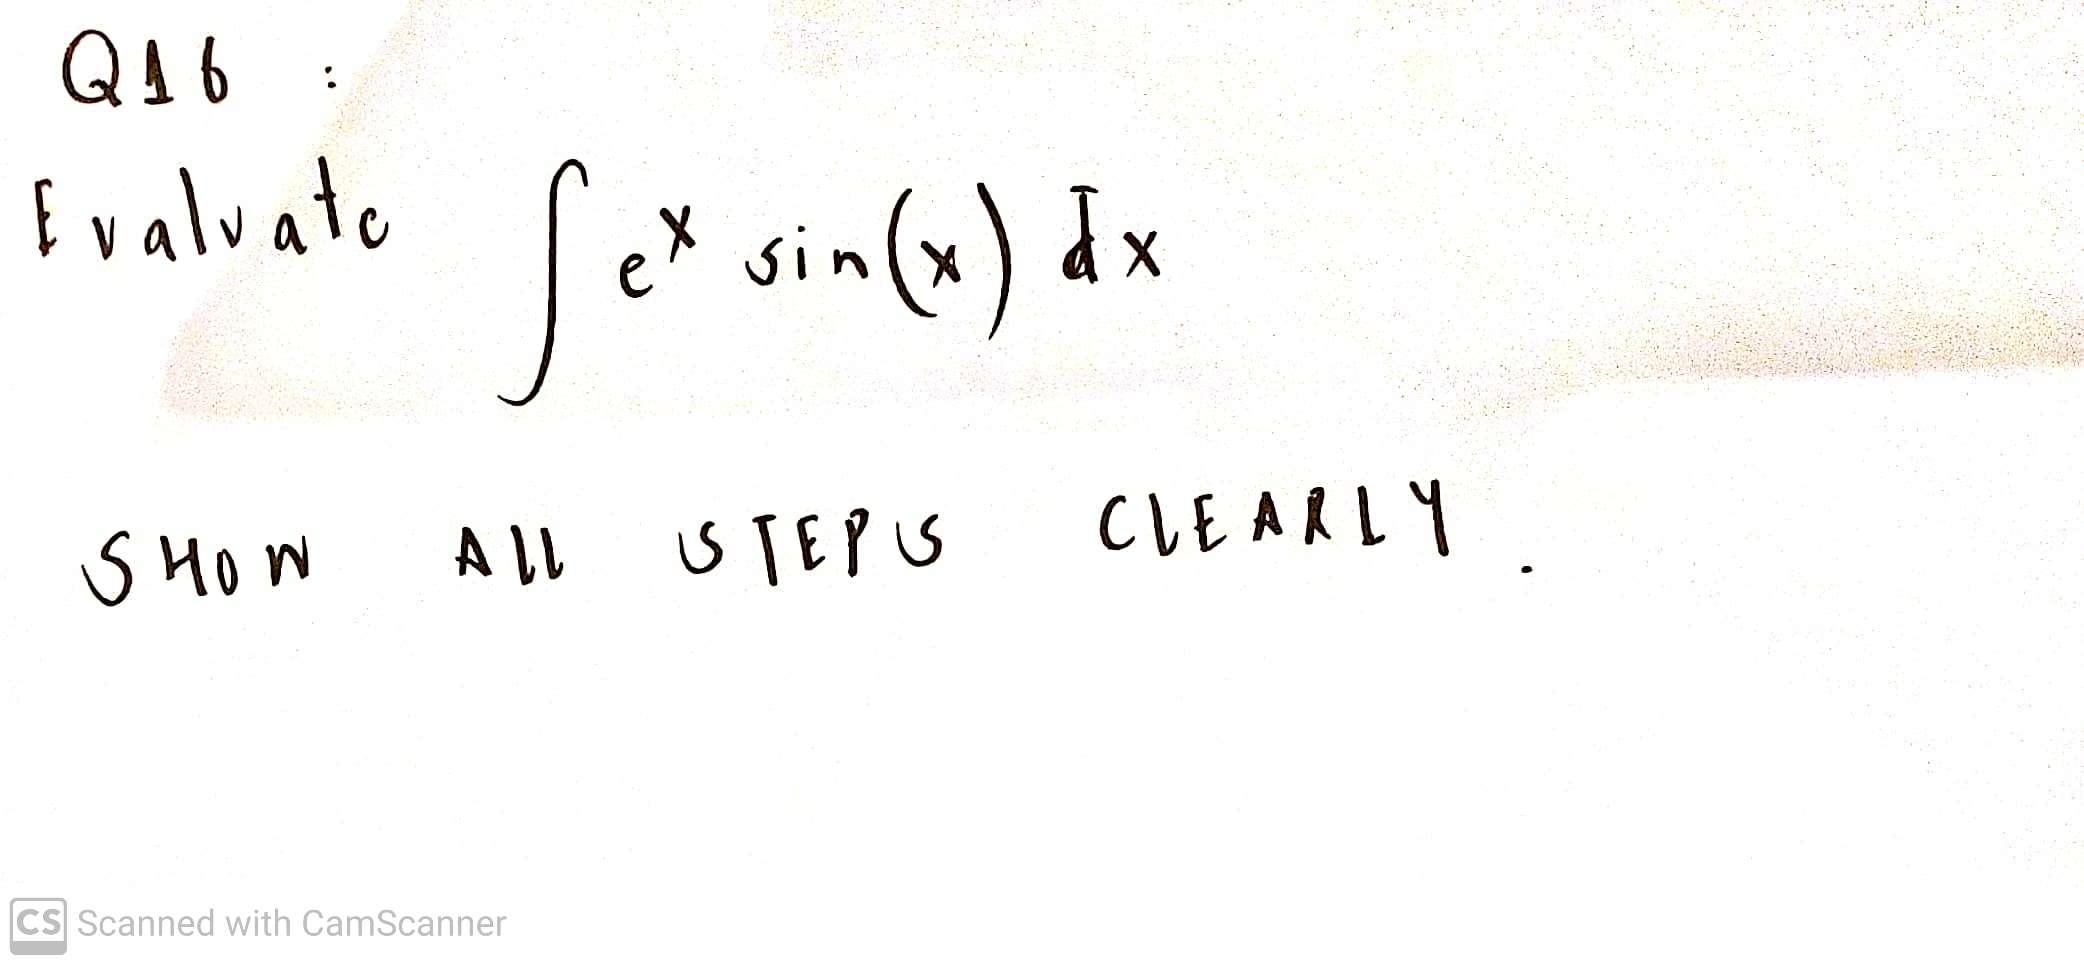 Q16 :
Evaluate ∫ eˣ sin(x) dx
SHOW ALL STEPS CLEARLY.
CS Scanned with CamScanner